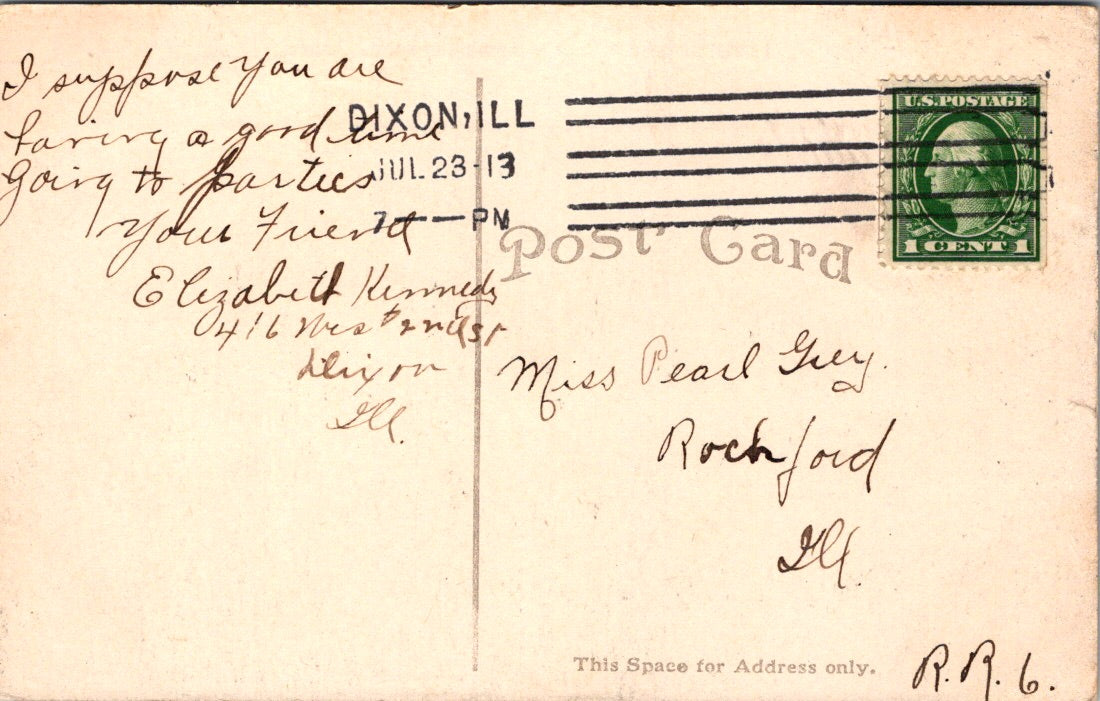 I suppose you are
having a good time
going to parties
Your Friend
Elizabeth Kennedy
416 West 2nd St
Dixon
Ill.
DIXON, ILL
JUL 23 - 13
7 — PM
U.S. POSTAGE
1 CENT 1
Post Card
Miss Pearl Grey.
Rockford
Ill.
This Space for Address only.
R.R. 6.